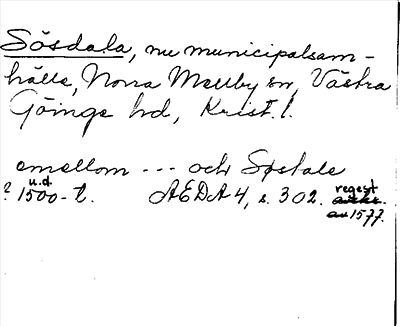 Sösdala, nu municipalsam-
hälle, Norra Mellby sn, Västra
Göinge hd, Krist. l.
emellom --- och Søstale
u.d.
? 1500-t. AEDA 4, s. 302. regest
av 1577.